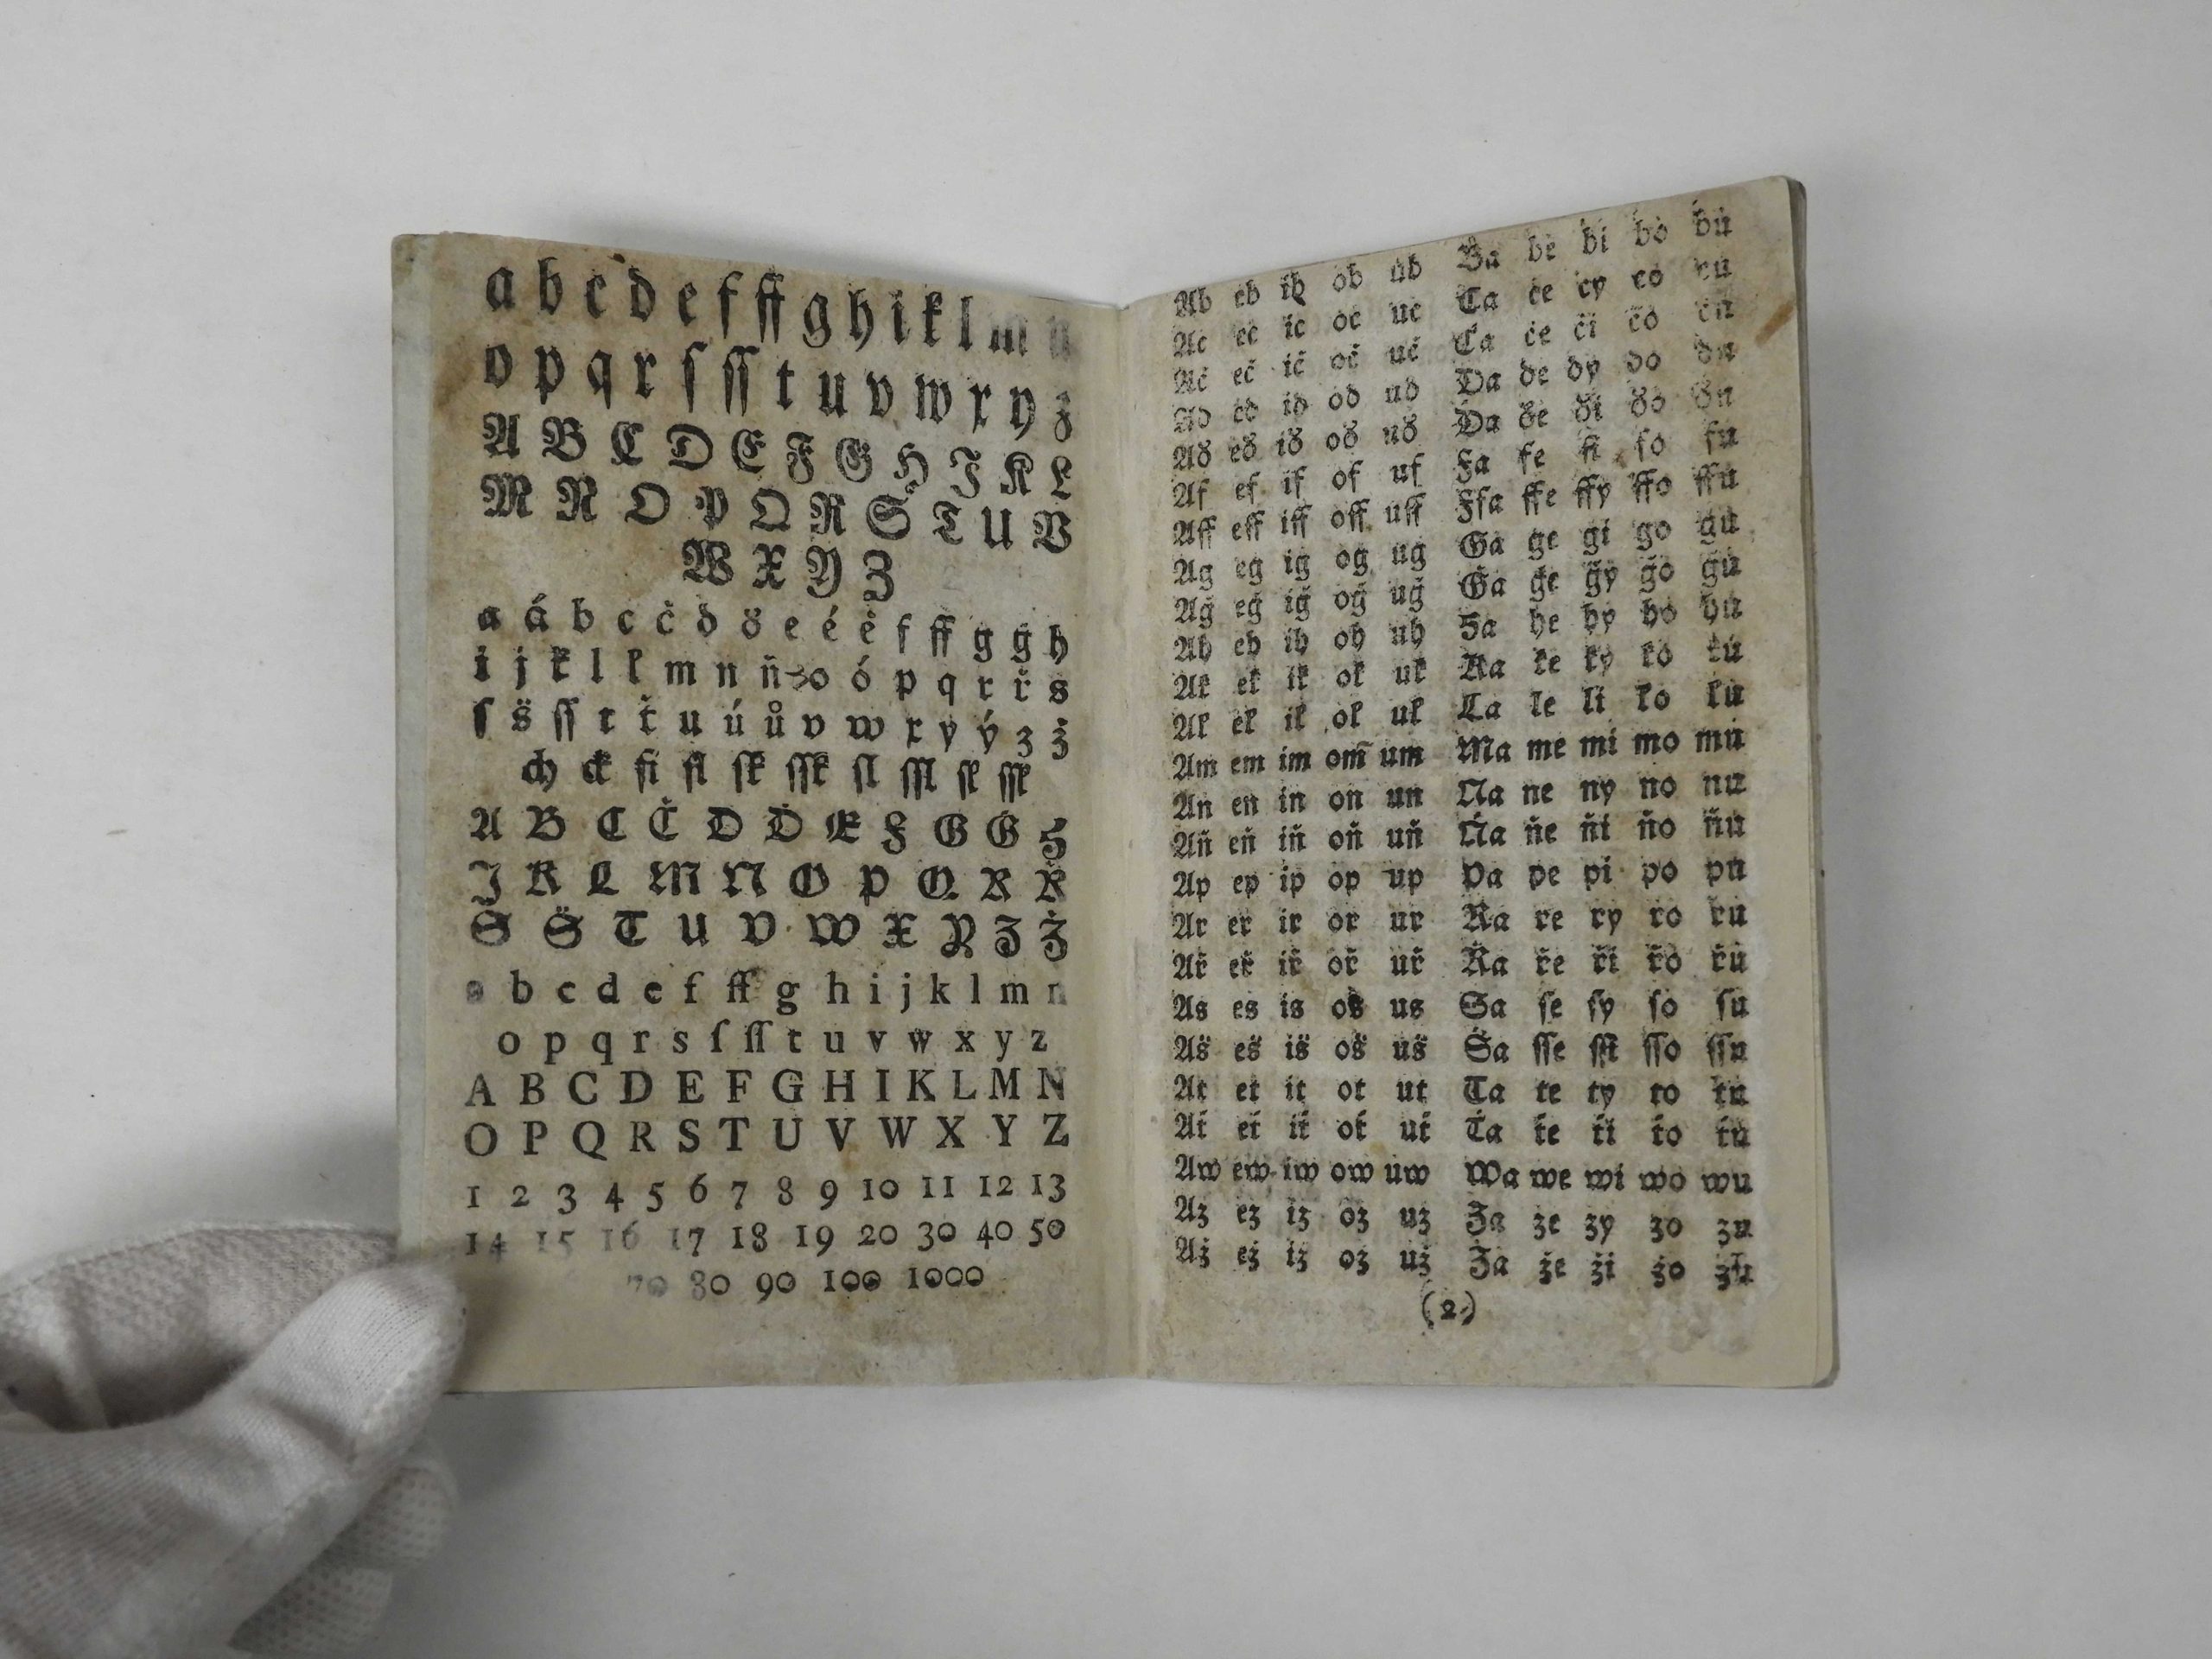 a b c d e f ff g h i k l m n
o p q r ſ ſſ t u v w x y z
A B C D E F G H I K L
M N O P Q R S T U V
W X Y Z
a á b c č d ď e é ě f ff g ğ h
i j k l ł m n ň o ó p q r ř s
ſ š ſſ t ť u ú ů v w x y ý z ž
ch ck fi fl ſk ſſk ſl ſſl ſł ſſł
A B C Č D Ď E F G Ğ H
J K L M N O P Q R Ř
S Š T U V W X Y Z Ž
a b c d e f ff g h i j k l m n
o p q r s ſ ſſ t u v w x y z
A B C D E F G H I K L M N
O P Q R S T U V W X Y Z
1 2 3 4 5 6 7 8 9 10 11 12 13
14 15 16 17 18 19 20 30 40 50
70 80 90 100 1000
Ab eb ib ob ub Ba be bi bo bu
Ac ec ic oc uc Ca ce cy co cu
Ač eč ič oč uč Ča če či čo ču
Ad ed id od ud Da de dy do du
Aď eď iď oď uď Ďa ďe ďi ďo ďu
Af ef if of uf Fa fe fi fo fu
Aff eff iff off uff Ffa ffe ffy ffo ffu
Ag eg ig og ug Ga ge gi go gu
Ağ eğ iğ oğ uğ Ğa ğe ğy ğo ğu
Ah eh ih oh uh Ha he hy ho hu
Ak ek ik ok uk Ka ke ky ko ku
Ał eł ił oł uł La le li ło łu
Am em im om̃ um Ma me mi mo mu
An en in on un Na ne ny no nu
Aň eň iň oň uň Ňa ňe ňi ňo ňu
Ap ep ip op up Pa pe pi po pu
Ar er ir or ur Ra re ry ro ru
Ař eř iř oř uř Řa ře ři řo řu
As es is os us Sa ſe ſy ſo ſu
Aš eš iš oš uš Ša ſſe ſſi ſſo ſſu
At et it ot ut Ta te ty to tu
Ať eť iť oť uť Ťa ťe ťi ťo ťu
Aw ew iw ow uw Wa we wi wo wu
Az ez iz oz uz Za ze zy zo zu
Až ež iž ož už Ža že ži žo žu
(2.)